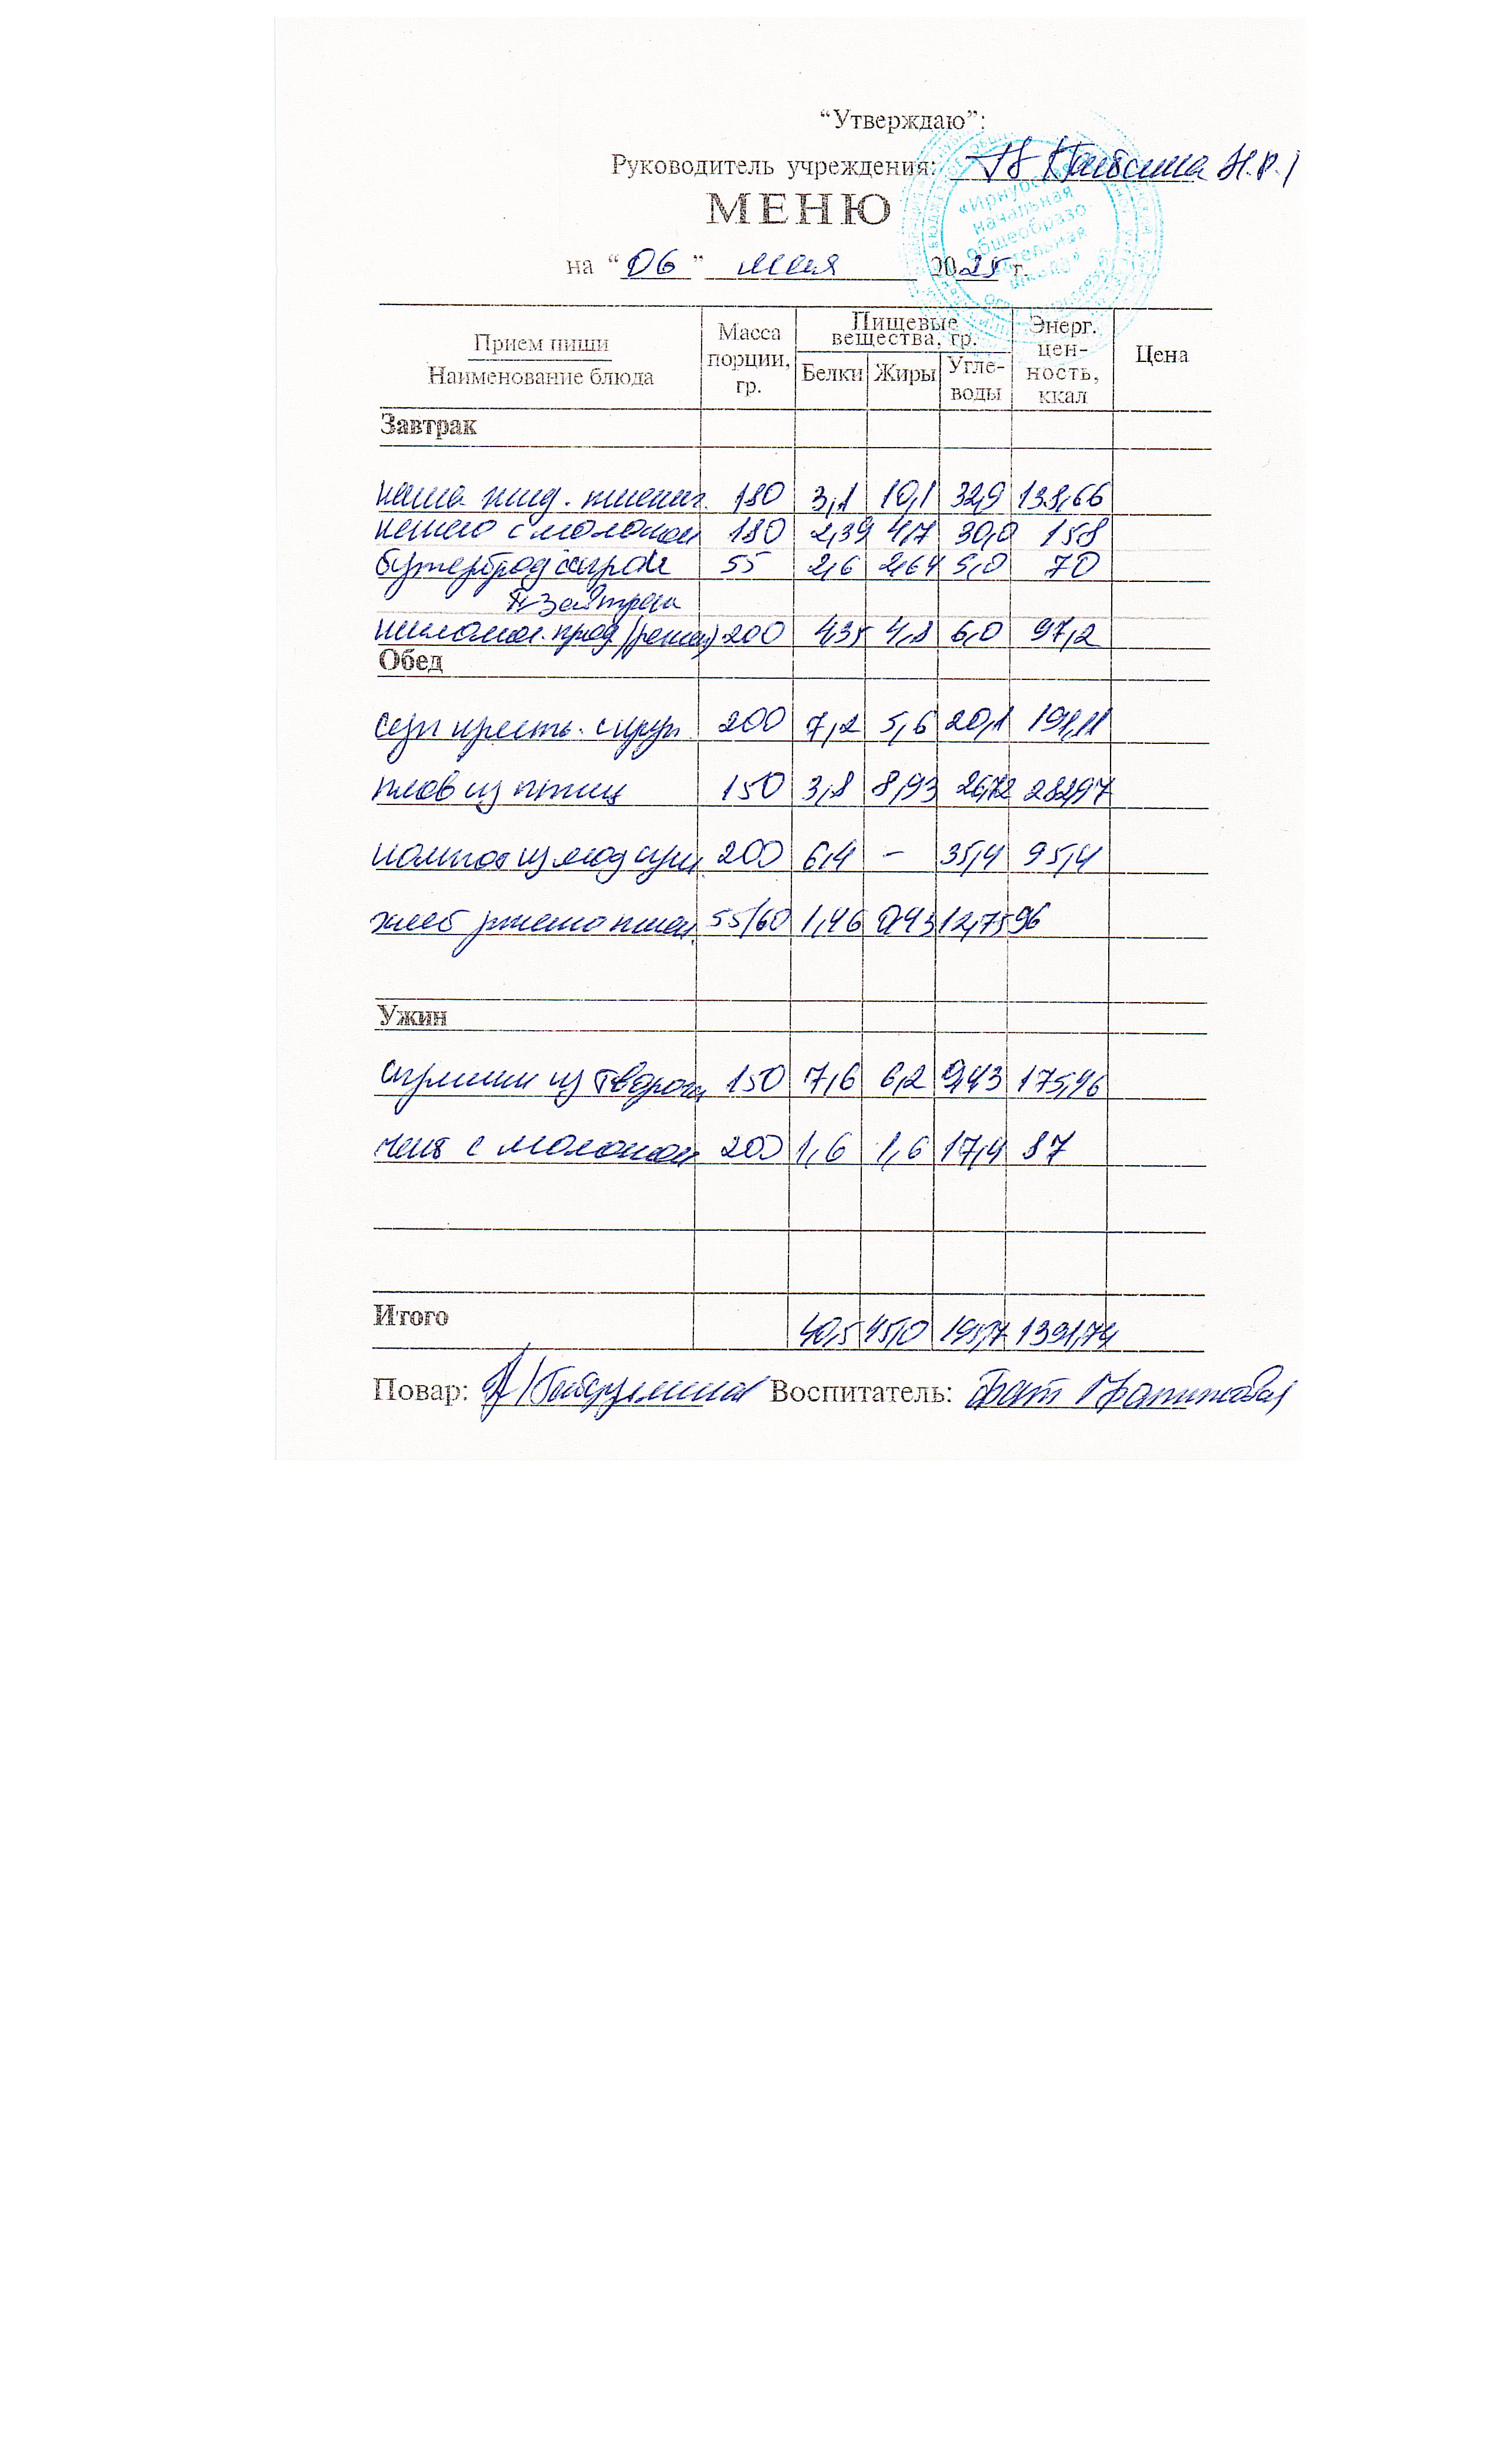 “Утверждаю”:
Руководитель учреждения:
МЕНЮ
на “06” мая 2025 г.
«Ирнурская
начальная
общеобразо
вательная
школа»
Прием пищи
Наименование блюда
Масса порции, гр.
Пищевые вещества, гр.
Белки Жиры Угле- воды
Энерг. цен- ность, ккал
Цена
Завтрак
каша жид. пшенич. 180 3,1 10,1 32,9 138,66
какао с молоком 180 2,39 4,7 30,0 158
бутерброд с сыром 55 2,6 2,64 5,0 70
II Завтрак
кисломол. прод 200 4,35 4,8 6,0 97,2
Обед
суп кресть. с круп. 200 7,2 5,6 20,1 191,11
плов из птиц 150 3,8 8,93 26,72 282,97
компот из 200 6,4 – 35,4 95,4
хлеб ржано пшен. 55/60 1,46 0,43 12,75 96
Ужин
сырники из творога 150 7,6 6,2 9,43 175,96
чай с молоком 200 1,6 1,6 17,4 87
Итого 40,5 45,0 195,7 1391,74
Повар: Воспитатель: